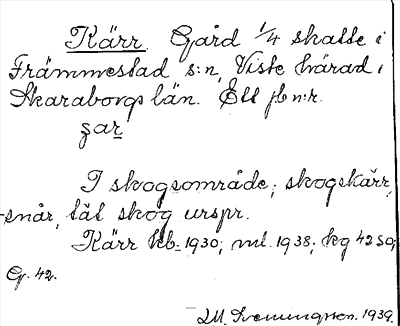 Kärr. Gård 1/4 skatte i
Främmestad s:n, Viste härad i
Skaraborgs län. Ett jb n:r.
ʒar
I skogsområde; skogskärr,
snår, tät skog urspr.
Kärr kb. 1930; ml. 1938; kg 42 SO;
Gr. 42.
1939.